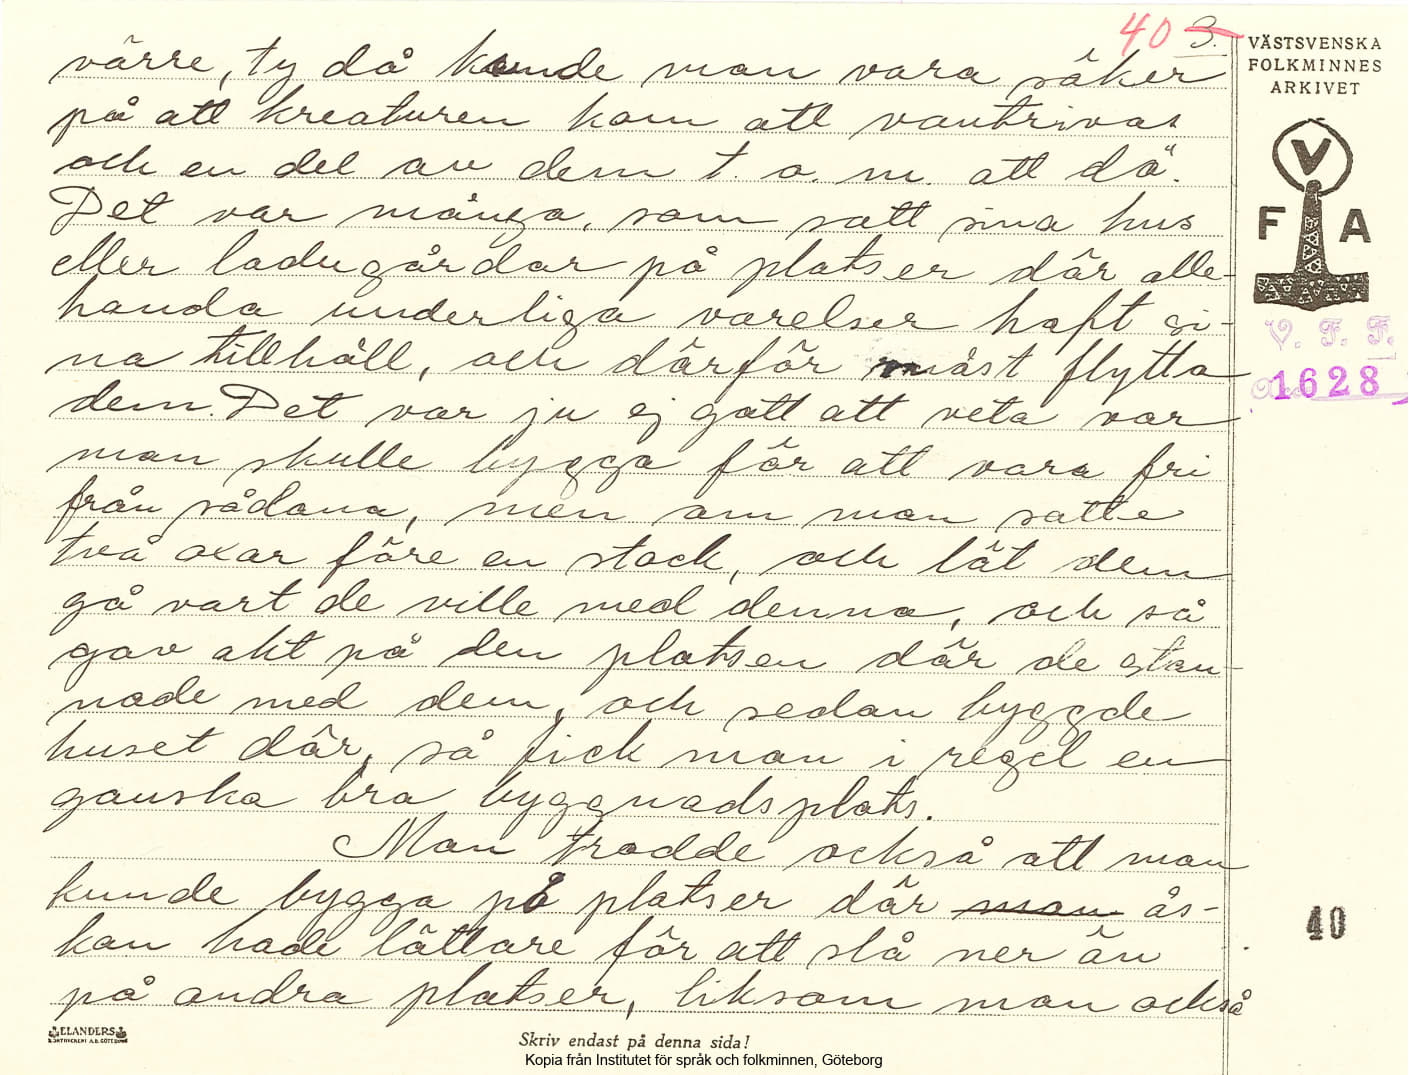 40 3.
värre, ty då kunde man vara säker
på att kreaturen kom att vantrivas
och en del av dem t. o. m. att dö".
Det var många, som satt sina hus
eller ladugårdar på platser där alle-
handa underliga varelser haft si-
na tillhåll, och därför måst flytta
dem. Det var ju ej gott att veta var
man skulle bygga för att vara fri
från sådana, men om man satte
två oxar före en stock, och lät dem
gå vart de ville med denna, och så
gav akt på den platsen där de stan-
nade med dem, och sedan byggde
huset där, så fick man i regel en
ganska bra byggnadsplats.
Man trodde också att man
kunde bygga på platser där man ås-
kan hade lättare för att slå ner än
på andra platser, liksom man också
VÄSTSVENSKA
FOLKMINNES
ARKIVET
V
F A
V. F. F.
1628
40
ELANDERS
Skriv endast på denna sida!
Kopia från Institutet för språk och folkminnen, Göteborg